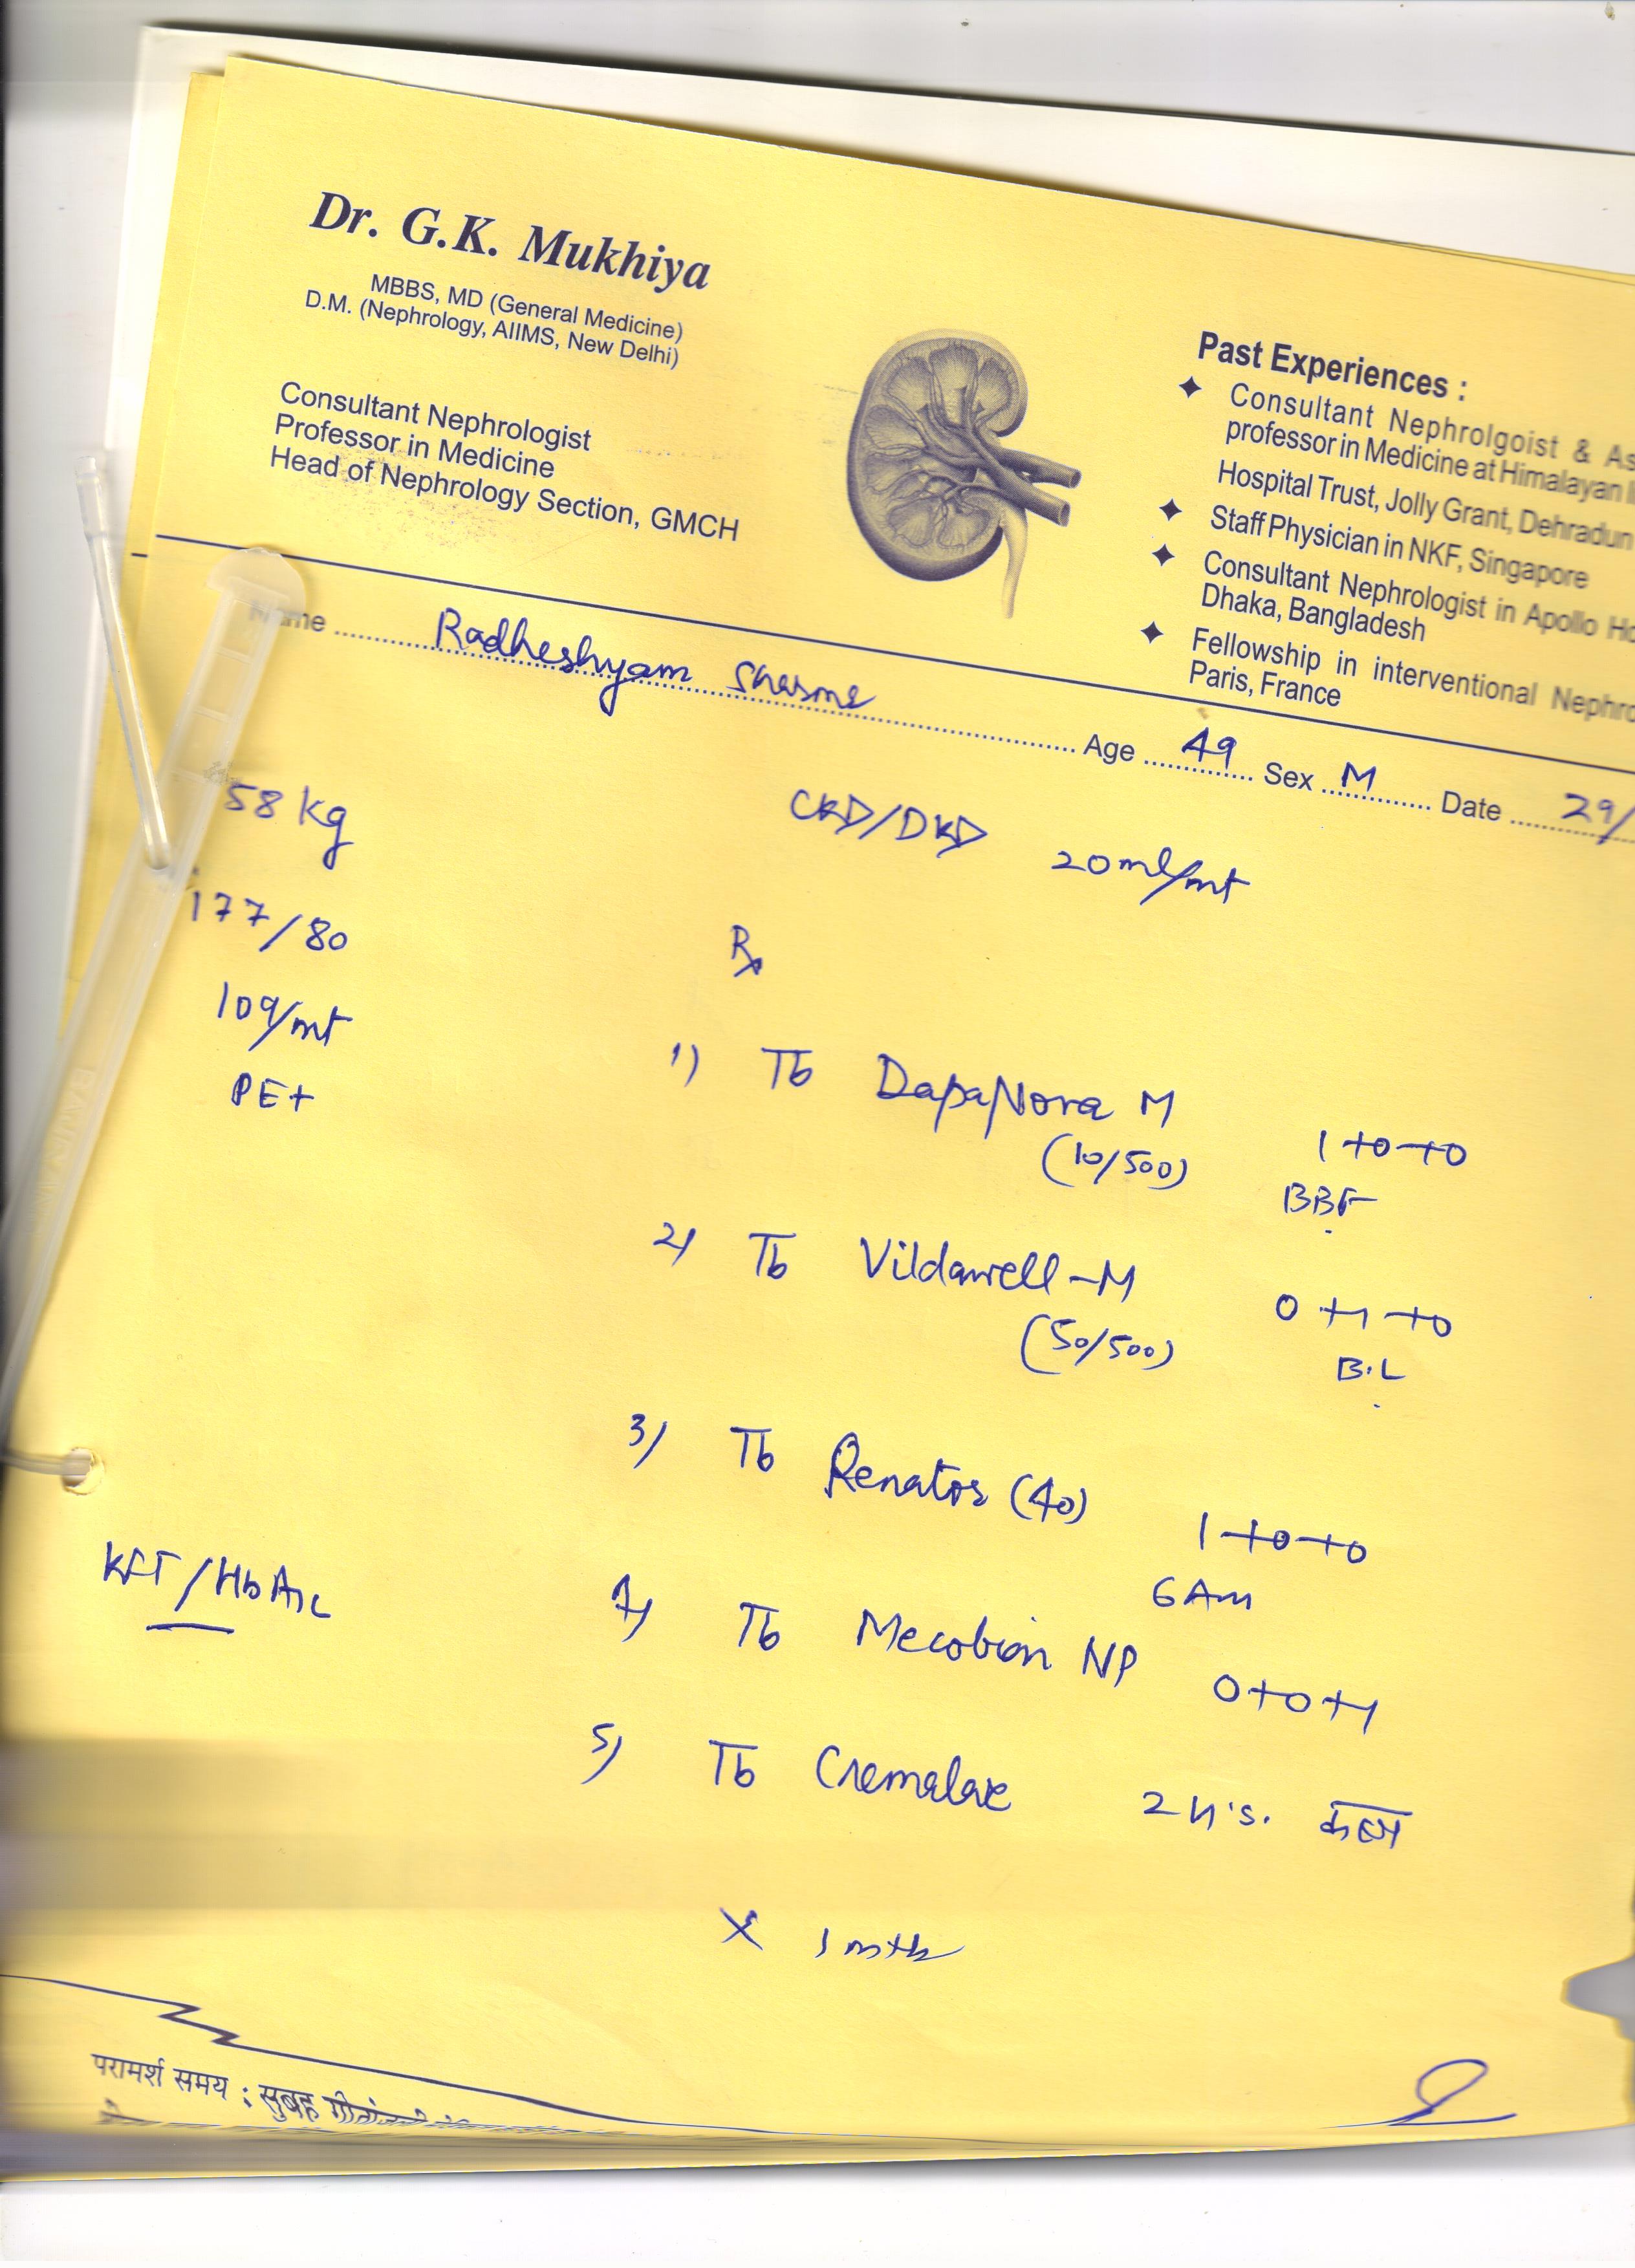 Dr. G.K. Mukhiya
MBBS, MD (General Medicine)
D.M. (Nephrology, AIIMS, New Delhi)
Consultant Nephrologist
Professor in Medicine
Head of Nephrology Section, GMCH
Past Experiences :
Consultant Nephrolgoist & As
professor in Medicine at Himalayan I
Hospital Trust, Jolly Grant, Dehradun
Staff Physician in NKF, Singapore
Consultant Nephrologist in Apollo Ho
Dhaka, Bangladesh
Fellowship in interventional Nephro
Paris, France
Name Radheshyam Sharma Age 49 Sex M Date 29/
58 kg
CKD/DKD 20 ml/mt
177/80
Rx
109/mt
PE+
1) Tb DapaNova M 1+0+0
(10/500) BBF
2) Tb Vildawell-M 0+1+0
(50/500) B.L
3) Tb Renatos (40) 1+0+0
6 Am
KFT/HbA1c
4) Tb Mecobion NP 0+0+1
5) Tb Cremalax 2 H.S. कब्ज
X 1 mth
परामर्श समय : सुबह